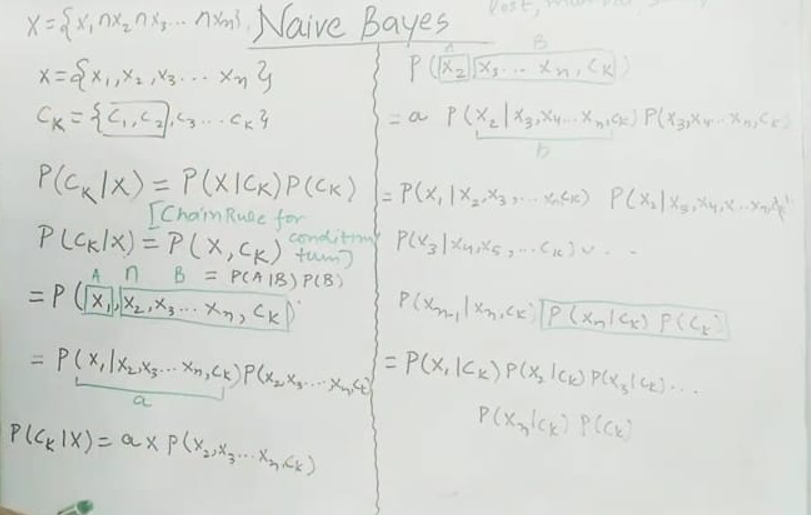 X = {x₁ ∩ x₂ ∩ x₃ ... ∩ xₙ}
Naive Bayes
X = {x₁, x₂, x₃ ... xₙ}
Cₖ = {C₁, C₂, C₃ ... Cₖ}
P(Cₖ|X) = P(X|Cₖ) P(Cₖ)
[Chain Rule for
P(Cₖ|X) = P(X, Cₖ)
A ∩ B = P(A|B) P(B)
= P(x₁, x₂, x₃ ... xₙ, Cₖ)
= P(x₁|x₂,x₃ ... xₙ,Cₖ) P(x₂,x₃ ... xₙ,Cₖ)
a
P(Cₖ|X) = a x P(x₂,x₃ ... xₙ,Cₖ)
A B
P(x₂, x₃ ... xₙ, Cₖ)
= a P(x₂|x₃,x₄ ... xₙ,Cₖ) P(x₃,x₄ ... xₙ,Cₖ)
b
= P(x₁|x₂,x₃, ... xₙ,Cₖ) P(x₂|x₃,x₄,
P(x₃|x₄,x₅, ... Cₖ) ...
P(xₙ₋₁|xₙ,Cₖ) P(xₙ|Cₖ) P(Cₖ)
= P(x₁|Cₖ) P(x₂|Cₖ) P(x₃|Cₖ) ...
P(xₙ|Cₖ) P(Cₖ)